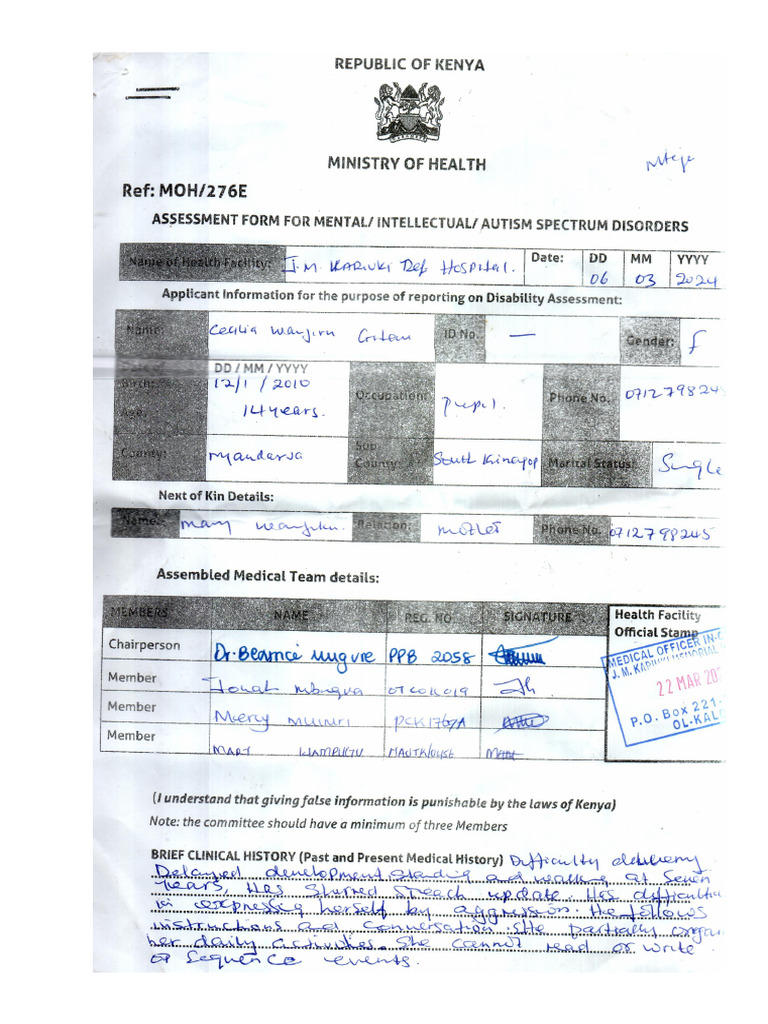 REPUBLIC OF KENYA
MINISTRY OF HEALTH
Ref: MOH/276E
ASSESSMENT FORM FOR MENTAL/ INTELLECTUAL/ AUTISM SPECTRUM DISORDERS
Name of Health Facility: J.M. KARIUKI Ref HOSPITAL. Date: DD MM YYYY
06 03 2024
Applicant Information for the purpose of reporting on Disability Assessment:
Name: Cecilia Wanjiru ID No. — Gender: f
Date of Birth: DD / MM / YYYY
12/1 / 2010 Occupation: Pupil. Phone No. 071279824
Age: 14 years.
County: Nyandarua Sub County: South Kinangop Marital Status: Single
Next of Kin Details:
Name: Mary Wanjiku. Relation: Mother Phone No. 0712798245
Assembled Medical Team details:
MEMBERS NAME REG. NO SIGNATURE Health Facility
Official Stamp
Chairperson Dr. Beatrice PPB 2058
Member
Member Mercy
Member MARY
MEDICAL OFFICER IN-C
J. M. KARIUKI MEMORIAL
22 MAR 20
P.O. Box 221-
OL-KAL
(I understand that giving false information is punishable by the laws of Kenya)
Note: the committee should have a minimum of three Members
BRIEF CLINICAL HISTORY (Past and Present Medical History) Difficulty delivery
Delayed development standing and walking at Seven
years, Has slurred speech update. Has difficulties
in expressing herself by aggression. He follows
instructions and conversation. She partially organ
her daily activities. She cannot read or write
or sequence events.